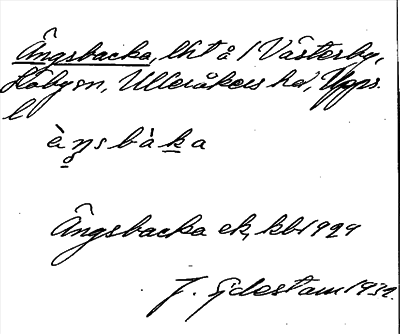 Ängsbacka, lht å 1 Västerby,
Läby sn, Ulleråkers hd, Upps.
l
àŋsbàka
Ängsbacka ek, kb 1929
J. Gidestam 1932.